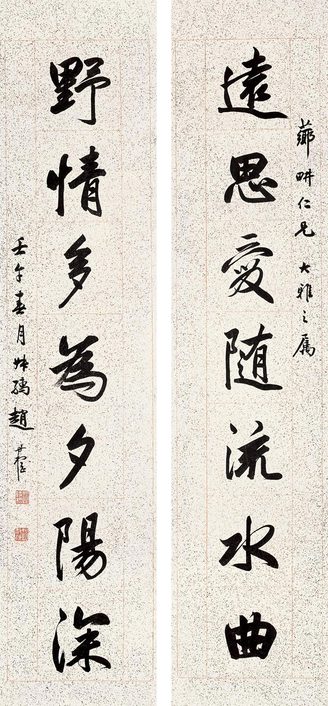 遠思愛随流水曲
薌畊仁兄大雅之屬
野情多為夕陽深
壬午春月叔孺趙